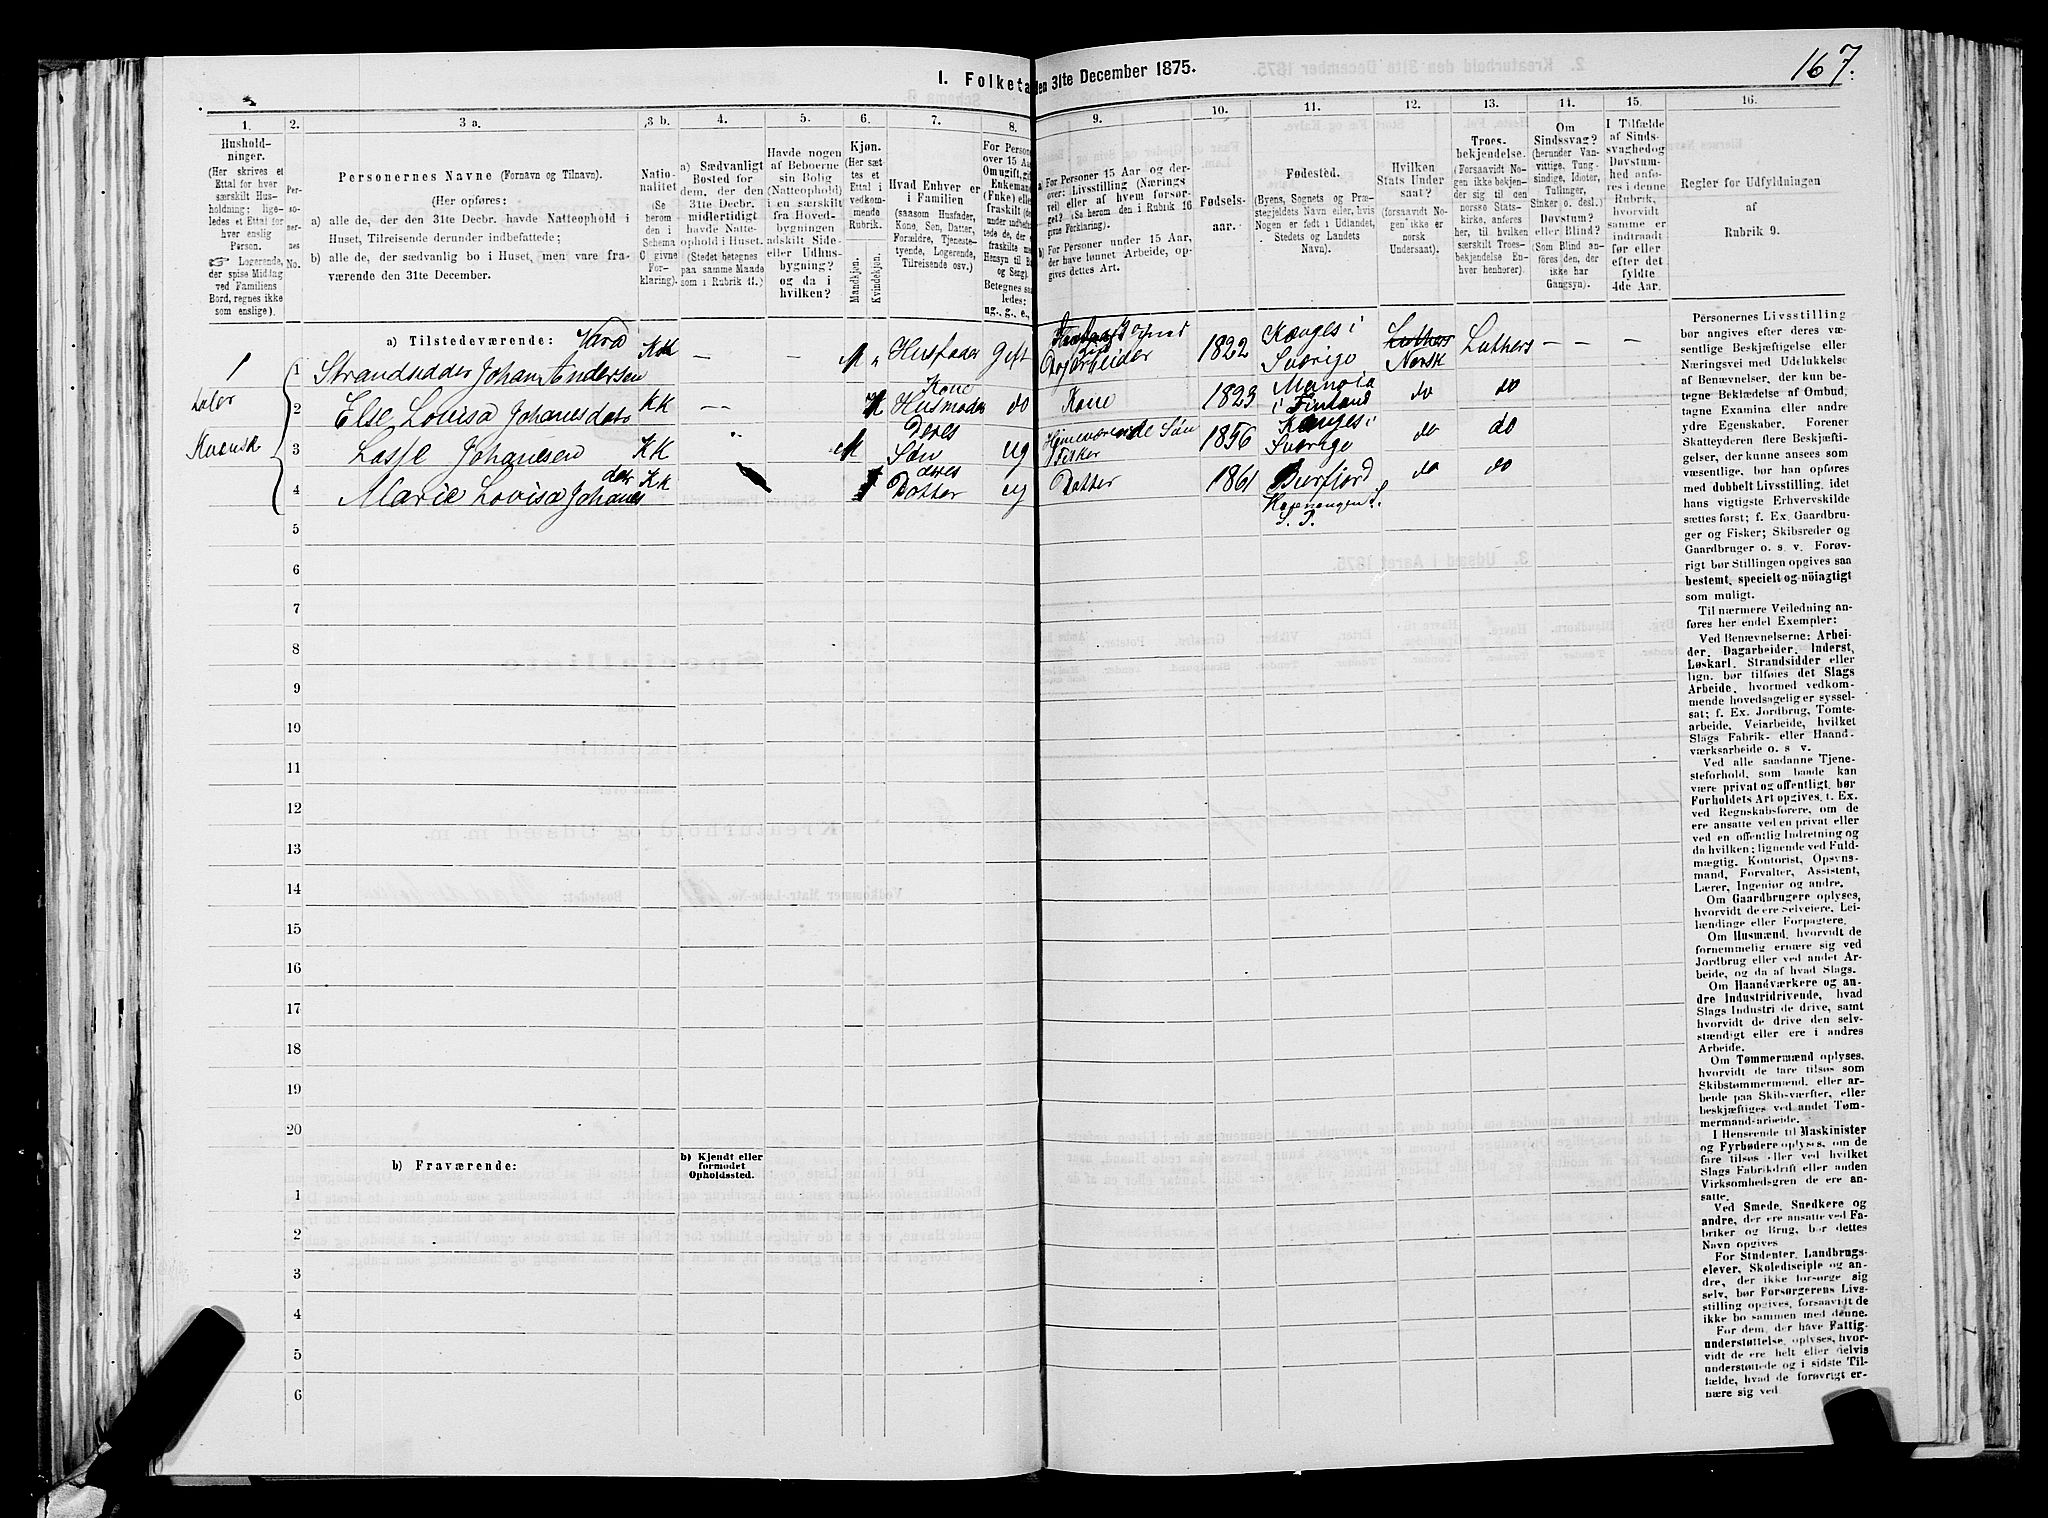 167.
I. Folketa
den 31te December 1875.
1.
Hushold-
ninger.
(Her skrives et
Ettal for hver
særskilt Hus-
holdning; lige-
ledes et Ettal for
hver enslig
Person.
☞ Logerende,
der spise Middag
ved Familiens
Bord, regnes ikke
som enslige).
2.
Per-
so-
ner-
nes
No.
3 a.
Personernes Navne (Fornavn og Tilnavn).
(Her opføres:
a) alle de, der den 31te Decbr. havde Natteophold i
Huset, Tilreisende derunder indbefattede;
b) alle de, der sædvanlig bo i Huset, men vare fra-
værende den 31te December.
3 b.
Natio-
nalitet
(Se
herom
den i
Schema
C givne
For-
klaring).
4.
a) Sædvanligt
Bosted for
dem, der den
31te Decbr.
midlertidigt
havde Natte-
ophold i Huset.
(Stedet betegnes
paa samme Maade
som i Rubrik 11.)
5.
Havde nogen
af Beboerne
sin Bolig
(Natteophold)
i en særskilt
fra Hoved-
bygningen
adskilt Side-
eller Udhus-
bygning?
og da i
hvilken?
6.
Kjøn.
(Her sæt-
tes et
Ettal i
vedkom-
mende
Rubrik.
Mandkjøn.
Kvindekjøn.
7.
Hvad Enhver er
i Familien
(saasom Husfader,
Kone, Søn, Datter,
Forældre, Tjeneste-
tyende, Logerende,
Tilreisende osv.)
8.
For Persone
over 15 Aar
Om ugift, gift
Enkemand
(Enke) eller
fraskilt
Betegnes saa-
ledes:
ug., g., e.,
9.
a) For Personer 15 Aar og der-
over: Livsstilling (Nærings
vei) eller af hvem forsør-
get? (Se herom den i Rubrik 16
givne Forklaring).
b) For Personer under 15 Aar,
der have lønnet Arbeide, op-
gives dettes Art.
10.
Fødsels-
aar.
11.
Fødested.
(Byens, Sognets og Præ-
stegjeldets Navn eller, hvis
Nogen er født i Udlandet,
Stedets og Landets
Navn).
12.
Hvilken
Stats Under
saat?
(forsaavidt No-
gen ikke er
norsk
Undersaat).
13.
Troes-
bekjendelse.
(Forsaavidt No-
gen ikke bekjen-
der sig til den
norske Stats-
kirke, anføres
her, til hvilken
særskilt Troes-
bekjendelse En-
hver henhører).
14.
Om
Sindssvag?
(herunder Van-
vittige, Tung-
sindige, Idioter,
Tullinger,
Sinker o. desl.)
Døvstum?
eller Blind?
(Som Blind an-
føres den, der
ikke har
Gangsyn).
15.
I Tilfælde
af Sinds-
svaghed og
Døvstum-
hed anfø-
res i denne
Rubrik,
hvorvidt
samme er
indtraadt
før eller
efter det
fyldte
4de Aar.
16.
Regler for Udfyldningen
af
Rubrik 9.
a) Tilstedeværende:
1
1 Strandsidder Johan Andersen KK — — M " Husfader Gift 1822 Kænges i Sverige Luthers Norsk Luthers — — —
Taler
Kvensk
2 Else Lovisa Johanesdatr KK — Kone Husmoder do Kone 1823 i Finland do do
3 Lasse Johanesen KK " M Deres Søn ug Hjemværende Søn Fisker 1856 Kænges i Sverige do do
4 Marie Lovisa Johanes dtr KK deres Datter ug Datter 1861 Burfjord do do
S. P.
5
6
7
8
9
10
11
12
13
14
15
16
17
18
19
20
b) Fraværende:
b) Kjendt eller
formodet
Opholdssted.
1
2
3
4
5
6
Personernes Livsstilling
bør angives efter deres væ-
sentlige Beskjæftigelse eller
Næringsvei med Udelukkelse
af Benævnelser, der kun be-
tegne Beklædelse af Ombud,
tagne Examina eller andre
ydre Egenskaber. Forener
Skatteyderen flere Beskjæfti-
gelser, der kunne ansees som
væsentlige, bør han opføres
med dobbelt Livsstilling, idet
hans vigtigste Erhvervskilde
sættes først; f. Ex. Gaardbru-
ger og Fisker; Skibsreder og
Gaardbruger o. s. v. Forøv-
rigt bør Stillingen opgives saa
bestemt, specielt og nøiagtigt
som muligt.
Til nærmere Veiledning an-
føres her endel Exempler:
Ved Benævnelserne: Arbei-
der, Dagarbeider, Inderst,
Løskarl, Strandsidder eller
lign. bør tilføies det Slags
Arbeide, hvormed vedkom-
mende hovedsagelig er syssel-
sat; f. Ex. Jordbrug, Tomte-
arbeide, Veiarbeide, hvilket
Slags Fabrik- eller Haand-
værksarbeide o. s. v.
Ved alle saadanne Tjene-
steforhold, som baade kan
være privat og offentligt, bør
Forholdets Art opgives, f. Ex.
ved Regnskabsførere, om de
ere ansatte ved en privat eller
ved en offentlig Indretning og
da hvilken; lignende ved Fuld-
mægtig, Kontorist, Opsyns-
mand, Forvalter, Assistent,
Lærer, Ingeniør og andre.
Om Gaardbrugere oplyses,
hvorvidt de ere Selveiere, Lei-
lændinge eller Forpagtere.
Om Husmænd, hvorvidt de
fornemmelig ernære sig ved
Jordbrug eller ved andet Ar-
beide, og da af hvad Slags.
Om Haandværkere og an-
dre Industridrivende, hvad
Slags Industri de drive, samt
hvorvidt de drive den selv-
stændigt eller ere i andres
Arbeide.
Om Tømmermænd oplyses,
hvorvidt de fare tilsøs som
Skibstømmermænd, eller ar-
beide paa Skibsværfter, eller
beskjæftiges ved andet Tøm-
mermandsarbeide.
I Henseende til Maskinister
og Fyrbødere oplyses, om de
fare tilsøs eller ved hvilket
Slags Fabrikdrift eller anden
Virksomhedsgren de ere an-
satte.
Ved Smede, Snedkere og
andre, der ere ansatte ved Fa-
briker og Brug, bør dettes
Navn opgives
For Studenter, Landbrugs-
elever, Skoledisciple og an-
dre, der ikke forsørge sig
selv, bør Forsørgerens Livs-
stilling opgives, forsaavidt de
ikke bo sammen med denne.
For dem, der have Fattig-
understøttelse, oplyses, hvor-
vidt de ere helt eller delvis
understøttede og i sidste Til-
fælde, hvad de forøvrigt er-
nære sig ved